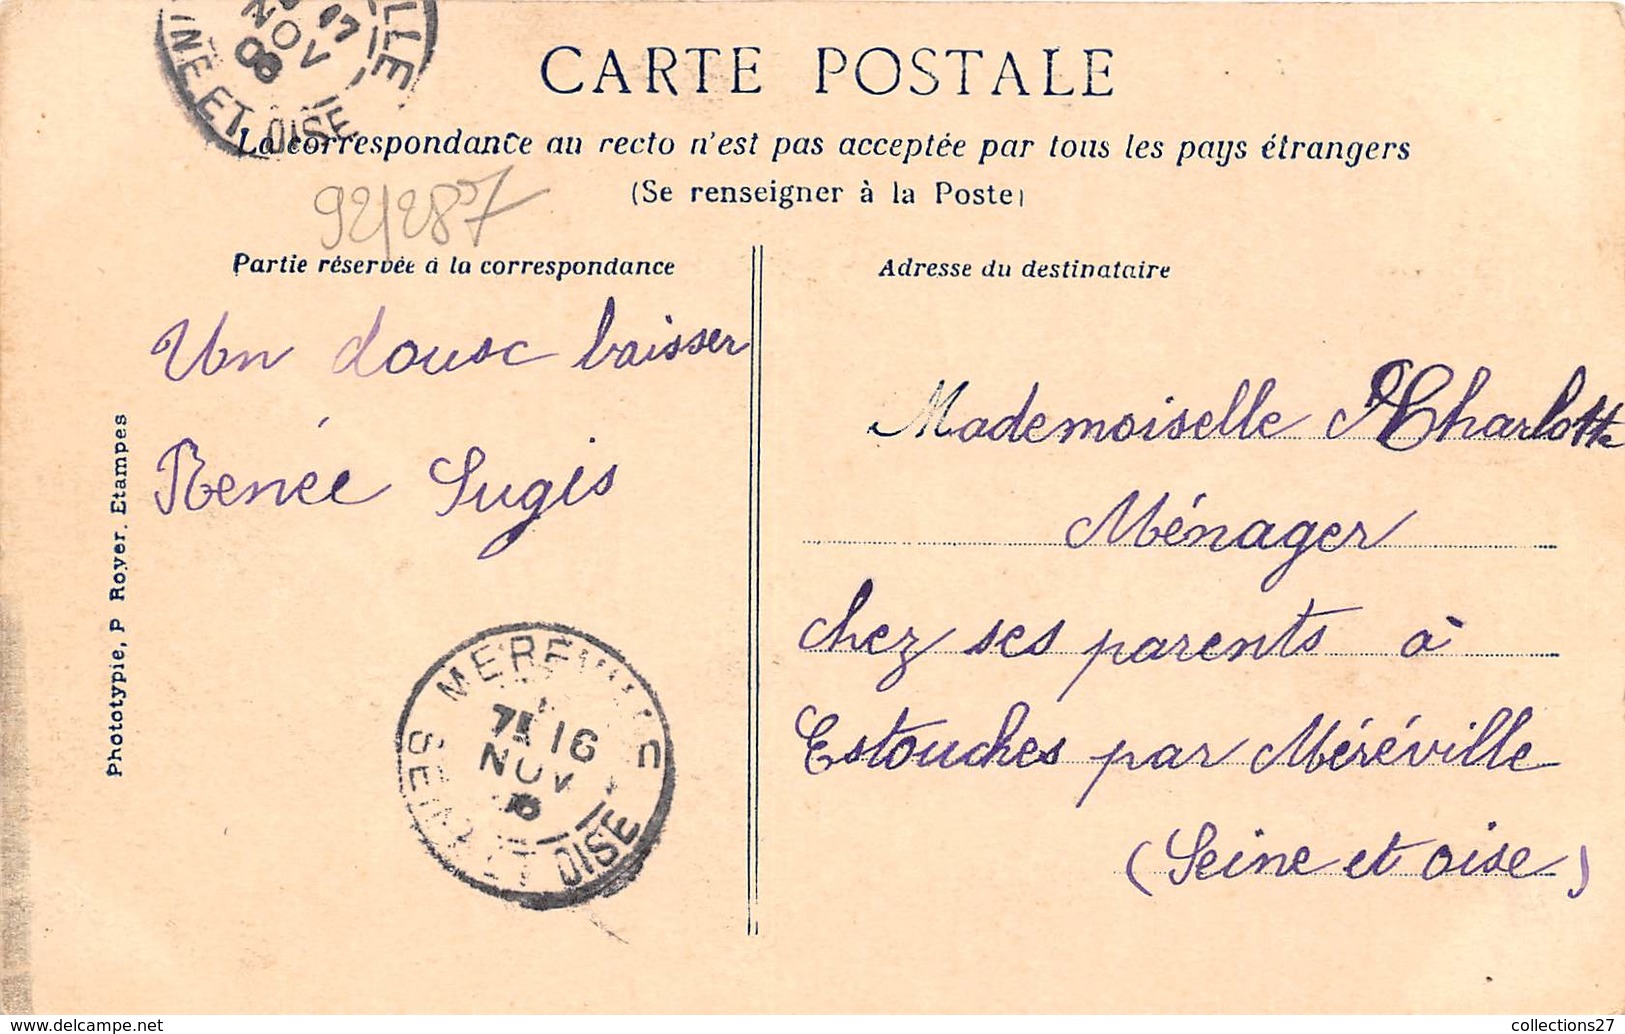 NOV
8
INE ET OISE
LLE
CARTE POSTALE
La correspondance au recto n'est pas acceptée par tous les pays étrangers
(Se renseigner à la Poste)
92/287
Partie réservée à la correspondance
Adresse du destinataire
Un dousc baisser
Renée Sugis
Mademoiselle Charlotte
Ménager
chez ses parents à
Estouches par Méréville
(Seine et oise)
MEREVILLE
16
NOV
SEINE ET OISE
Phototypie, P Royer. Etampes
www.delcampe.net
collections27